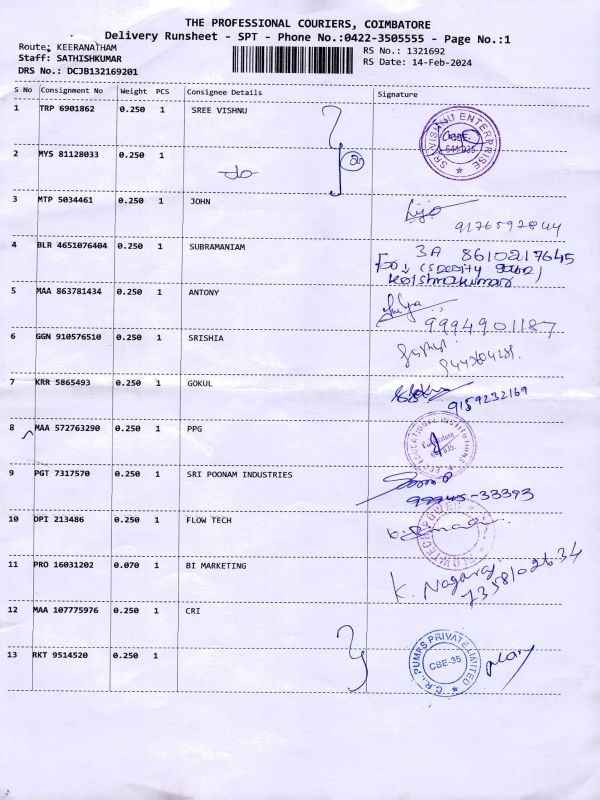 THE PROFESSIONAL COURIERS, COIMBATORE
Delivery Runsheet - SPT - Phone No.:0422-3505555 - Page No.:1
Route: KEERANATHAM
RS No.: 1321692
Staff: SATHISHKUMAR
RS Date: 14-Feb-2024
DRS No.: DCJB132169201
S No Consignment No Weight PCS Consignee Details Signature
1 TRP 6901862 0.250 1 SREE VISHNU
SRI VISHNU ENTERPRISE
641 035
2 MYS 81128033 0.250 1
do
3 MTP 5034461 0.250 1 JOHN
9176592844
4 BLR 4651076404 0.250 1 SUBRAMANIAM
3A 8610217645
Krishnakumar
5 MAA 863781434 0.250 1 ANTONY
9994901187
6 GGN 910576510 0.250 1 SRISHIA
7 KRR 5865493 0.250 1 GOKUL
9159232169
8 MAA 572763290 0.250 1 PPG
9 PGT 7317570 0.250 1 SRI POONAM INDUSTRIES
99945-33393
10 DPI 213486 0.250 1 FLOW TECH
11 PRO 16031202 0.070 1 BI MARKETING
K. Nagaraj
7358102634
12 MAA 107775976 0.250 1 CRI
C.R.I. PUMPS PRIVATE LIMITED
CBE-35
13 RKT 9514520 0.250 1